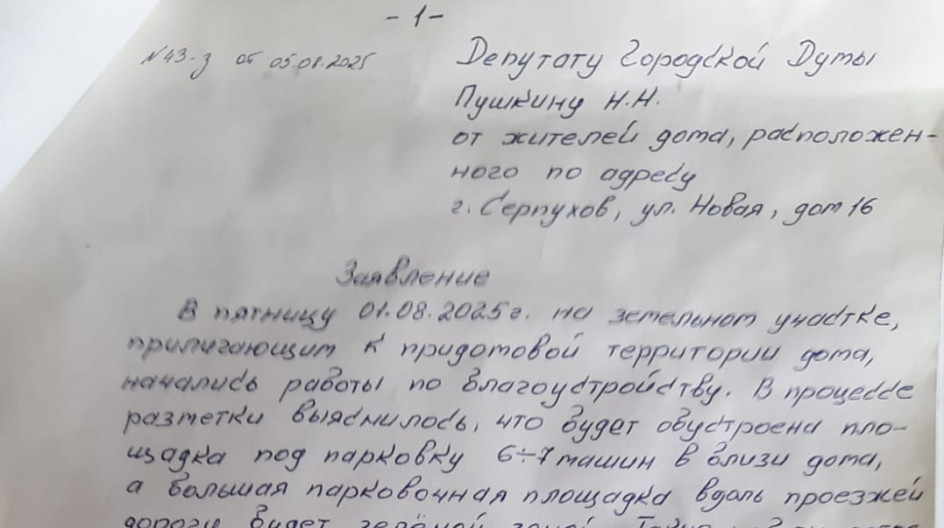 - 1 -
N43-з от 05.08.2025
Депутату Городской Думы
Пушкину Н.Н.
от жителей дома, расположен-
ного по адресу
г. Серпухов, ул. Новая, дом 16
Заявление
В пятницу 01.08.2025г. на земельном участке,
прилигающим к придомовой территории дома,
начались работы по благоустройству. В процессе
разметки выяснилось, что будет обустроена пло-
щадка под парковку 6÷7 машин в близи дома,
а большая парковочная площадка вдоль проезжей
дороги будет зелёной зоной.